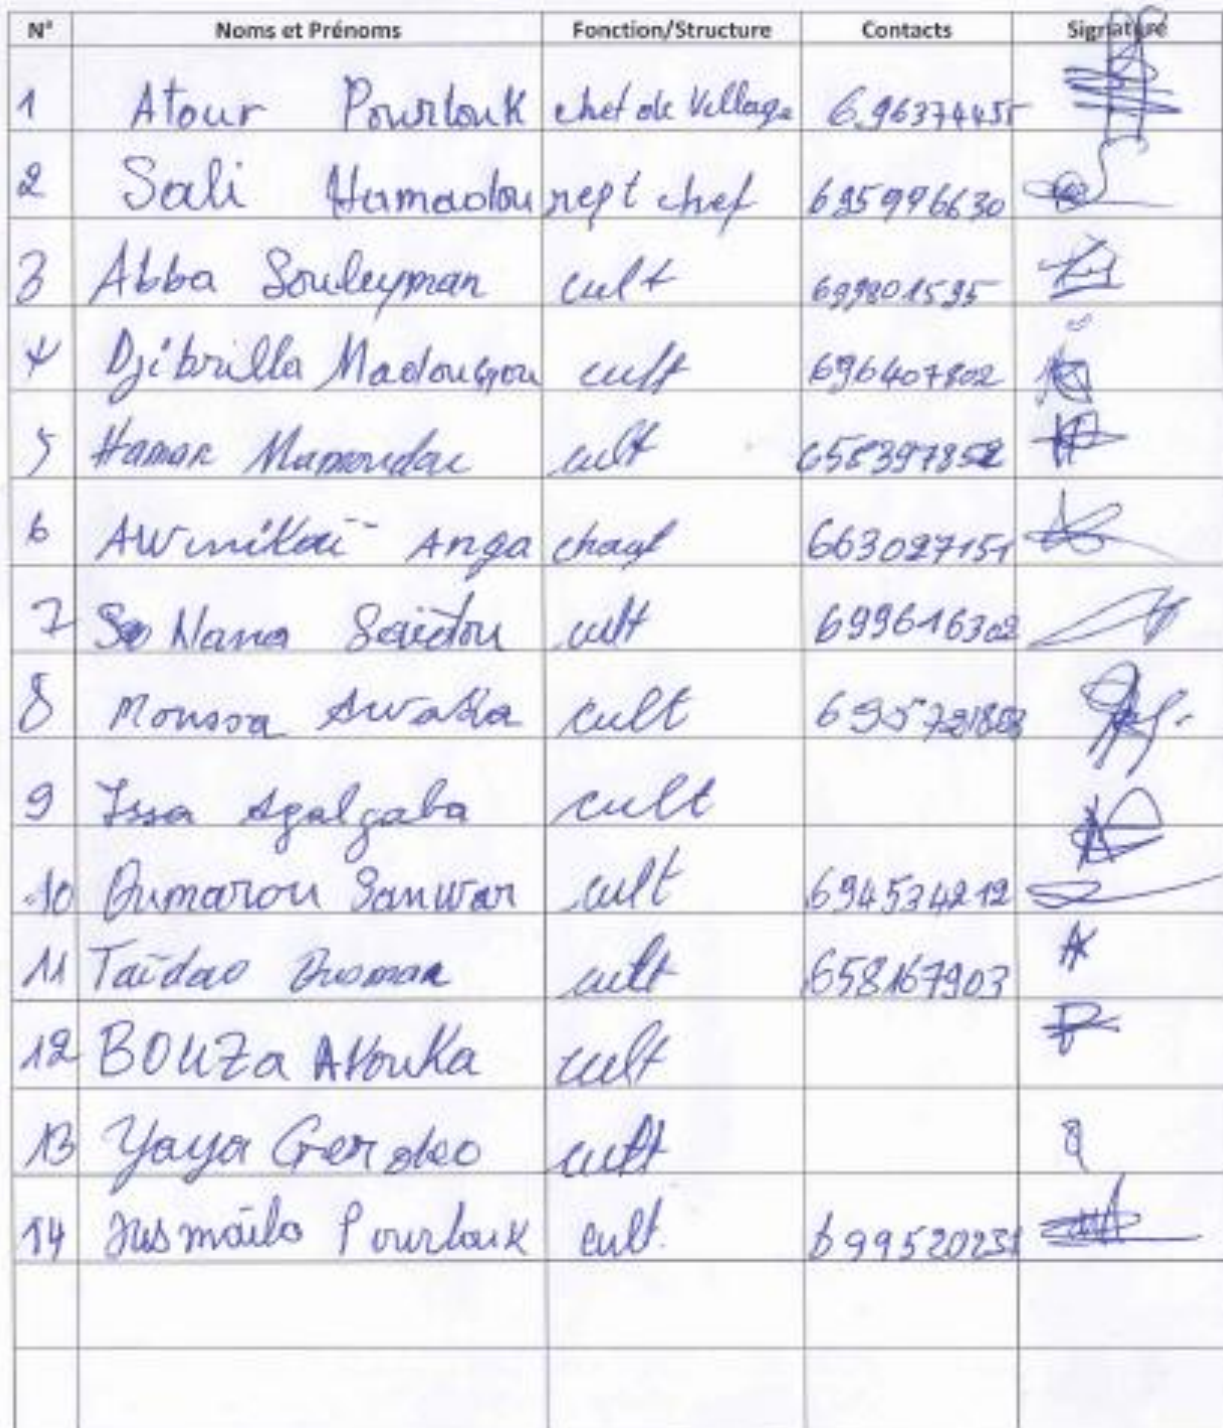 N° Noms et Prénoms Fonction/Structure Contacts Signature
1 Atour Pourtouk chef de Village 696374451
2 Sali Hamadou rept chef 695996630
3 Abba Souleyman cult 699801595
4 Djibrilla Madougou cult 696407802
5 Haman Mamoudou cult 658397852
6 Awinikaï Anga chauf 663027151
7 Nana Seïdou cult 699616302
8 Moussa Awaka cult
9 Issa Agalgaba cult
10 Oumarou Sanwar cult 694534212
11 Taïdao Ousman cult 658167903
12 BOUZa Atouka cult
13 Yaya Gerdeo cult
14 Pourtouk cult. 699520231